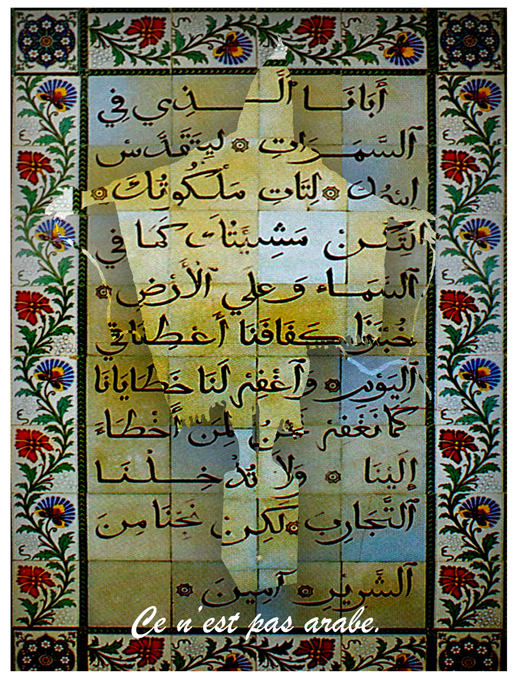 أَبَانَا ٱلَّذِي فِي
ٱلسَّمَوَاتِ لِيَتَقَدَّسْ
ٱسْمُكَ لِتَأْتِ مَلَكُوتُكَ
لِتَكُنْ مَشِيئَتُكَ كَمَا فِي
ٱلسَّمَاء وَعَلَي ٱلْأَرْضِ
خُبْزَنَا كَفَافَنَا أَعْطِنَا فِي
ٱلْيَوْمِ وَٱغْفِرْ لَنَا خَطَايَانَا
كَمَا نَغْفِرُ نَحْنُ لِمَنْ أَخْطَاءَ
إِلَيْنَا وَلَا تُدْخِلْنَا
ٱلتَّجَارِبَ لَٰكِنْ نَجِّنَا مِنَ
ٱلشَّرِيرِ آمِينَ
Ce n'est pas arabe.